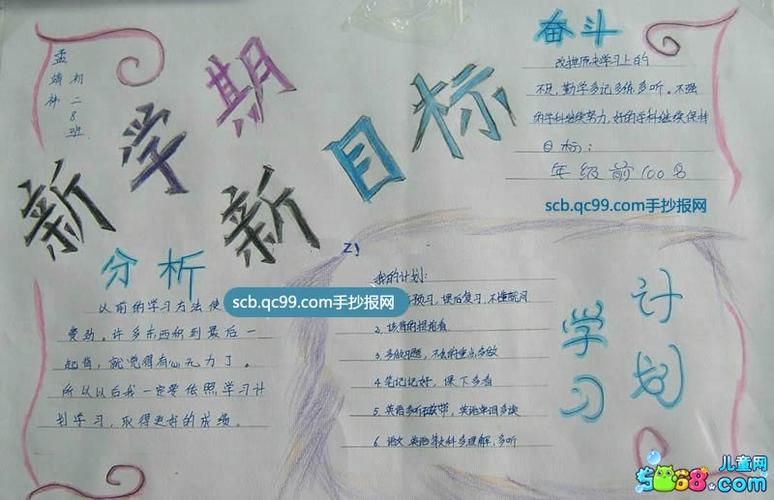 孟 初二8班
新学期
新目标
奋斗
改掉原来学习上的
不足,勤学多记多练多听。不强
的学科继续努力,好的学科继续保持
目标:
年级前100名
scb.qc99.com手抄报网
分析
以前的学习方法使
许多东西积到最后一
起背,就觉得有心无力了。
所以以后我一定要依照学习计
划学习,取得更好的成绩。
scb.qc99.com手抄报网
我的计划:
预习,课后复习,不懂就问
2. 该背的提前背
3. 多做习题,不会的重点多做
4. 笔记记好,课下多看
5. 英语多听磁带,英语单词多读
6. 语文 英语等文科多理解,多听
学习
计划
儿童网
5068.com